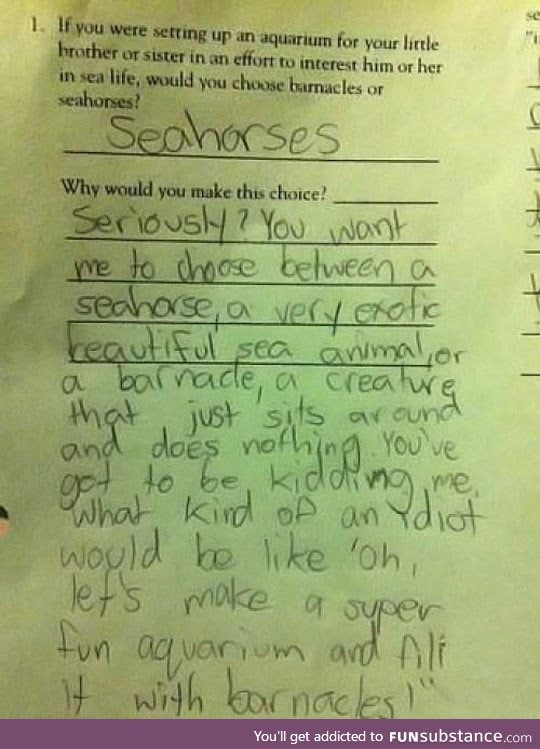 1. If you were setting up an aquarium for your little
brother or sister in an effort to interest him or her
in sea life, would you choose barnacles or
seahorses?
Seahorses
Why would you make this choice?
Seriously? You want
me to choose between a
seahorse, a very exotic
beautiful sea animal, or
a barnacle, a creature
that just sits around
and does nothing. You've
got to be kidding me.
What kind of an idiot
would be like 'oh,
let's make a super
fun aquarium and fill
it with barnacles!"
You'll get addicted to FUNsubstance.com